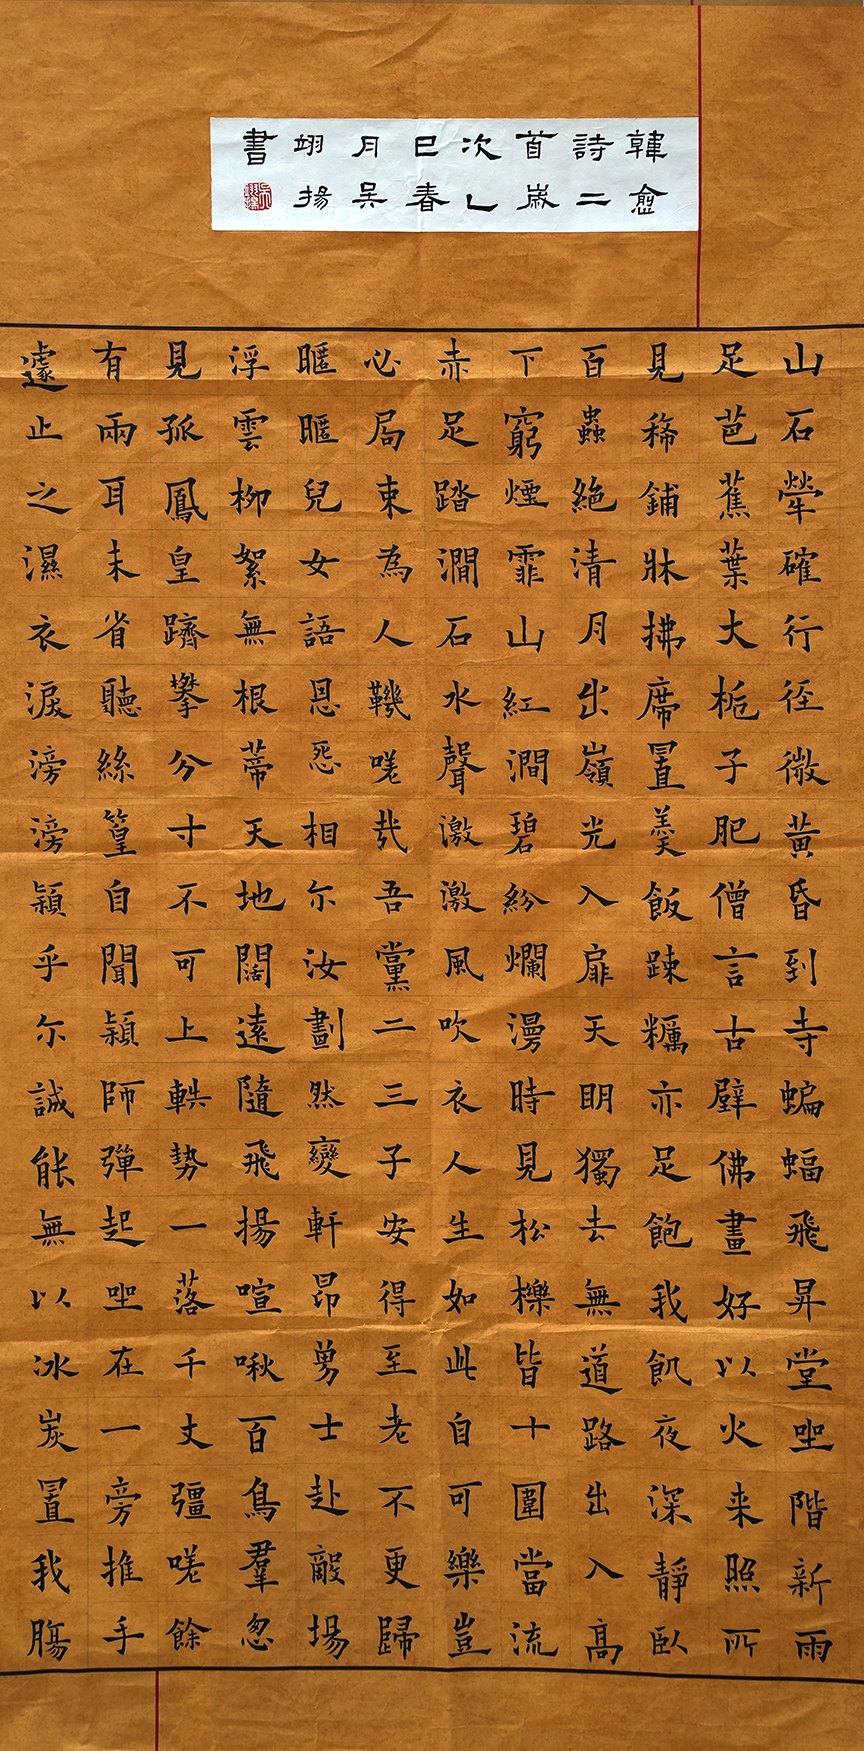 韓愈
詩二
首歲
次乙
巳春
月吳
翊揚
書
山石犖確行徑微黃昏到寺蝙蝠飛昇堂坐階新雨
足芭蕉葉大栀子肥僧言古壁佛畫好以火来照所
見稀鋪牀拂席置羹飯疎糲亦足飽我飢夜深靜臥
百蟲絶清月出嶺光入扉天明獨去無道路出入高
下窮煙霏山紅澗碧紛爛漫時見松櫟皆十圍當流
赤足踏澗石水聲激激風吹衣人生如此自可樂豈
必局束為人鞿嗟哉吾黨二三子安得至老不更歸
暱暱兒女語恩怨相尔汝劃然變軒昂勇士赴敵場
浮雲柳絮無根蒂天地闊遠隨飛揚喧啾百鳥羣忽
見孤鳳皇躋攀分寸不可上軼勢一落千丈彊嗟餘
有兩耳未省聽絲篁自聞穎師彈起坐在一旁推手
遽止之濕衣淚滂滂穎乎尔誠能無以冰炭置我腸